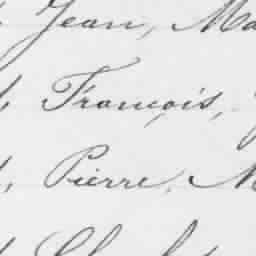 Jean, Ma
François,
Pierre, M